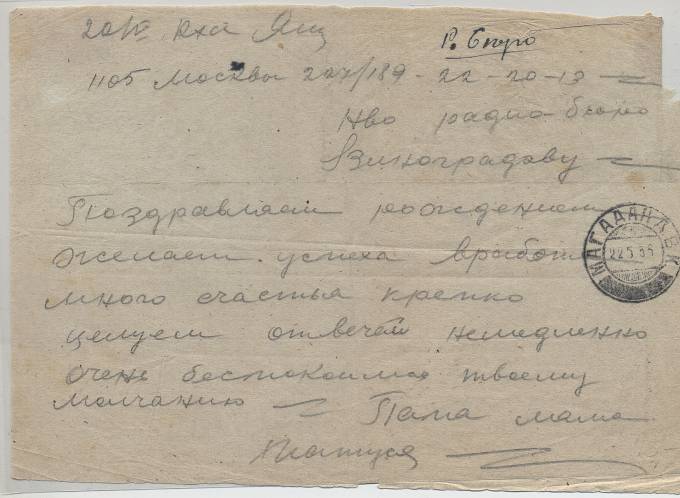 20/V
Р. бюро
1105 Москвы 227/189 - 22 - 20-19 =
Нво радио-бюро
Виноградову =
Поздравляем рождением
желаем успеха вработ
много счастья крепко
целуем отвечай немедленно
очень беспокоимсо твоему
молчанию = Папа мама
МАГАДАН Д.В.К.
22 5 35